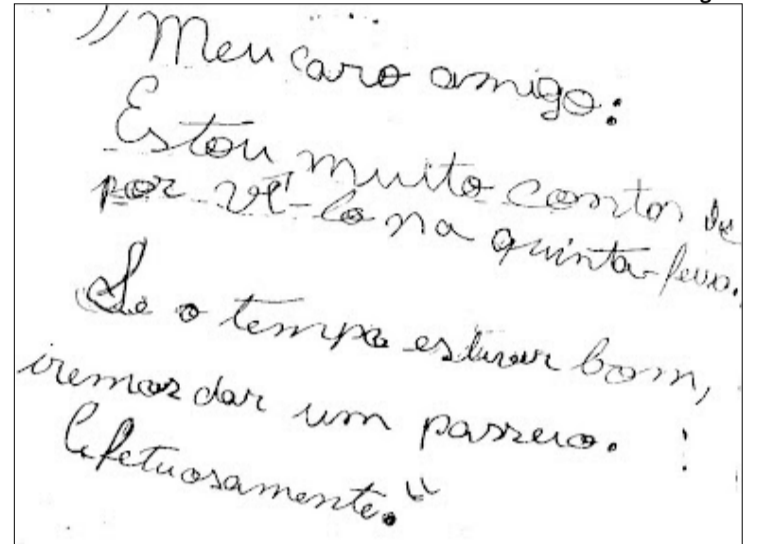 "Meu caro amigo:
Estou muito contor de
por vê-lo na quinta-feira.
Se o tempo estiver bom,
iremos dar um passeio.
Afetuosamente."